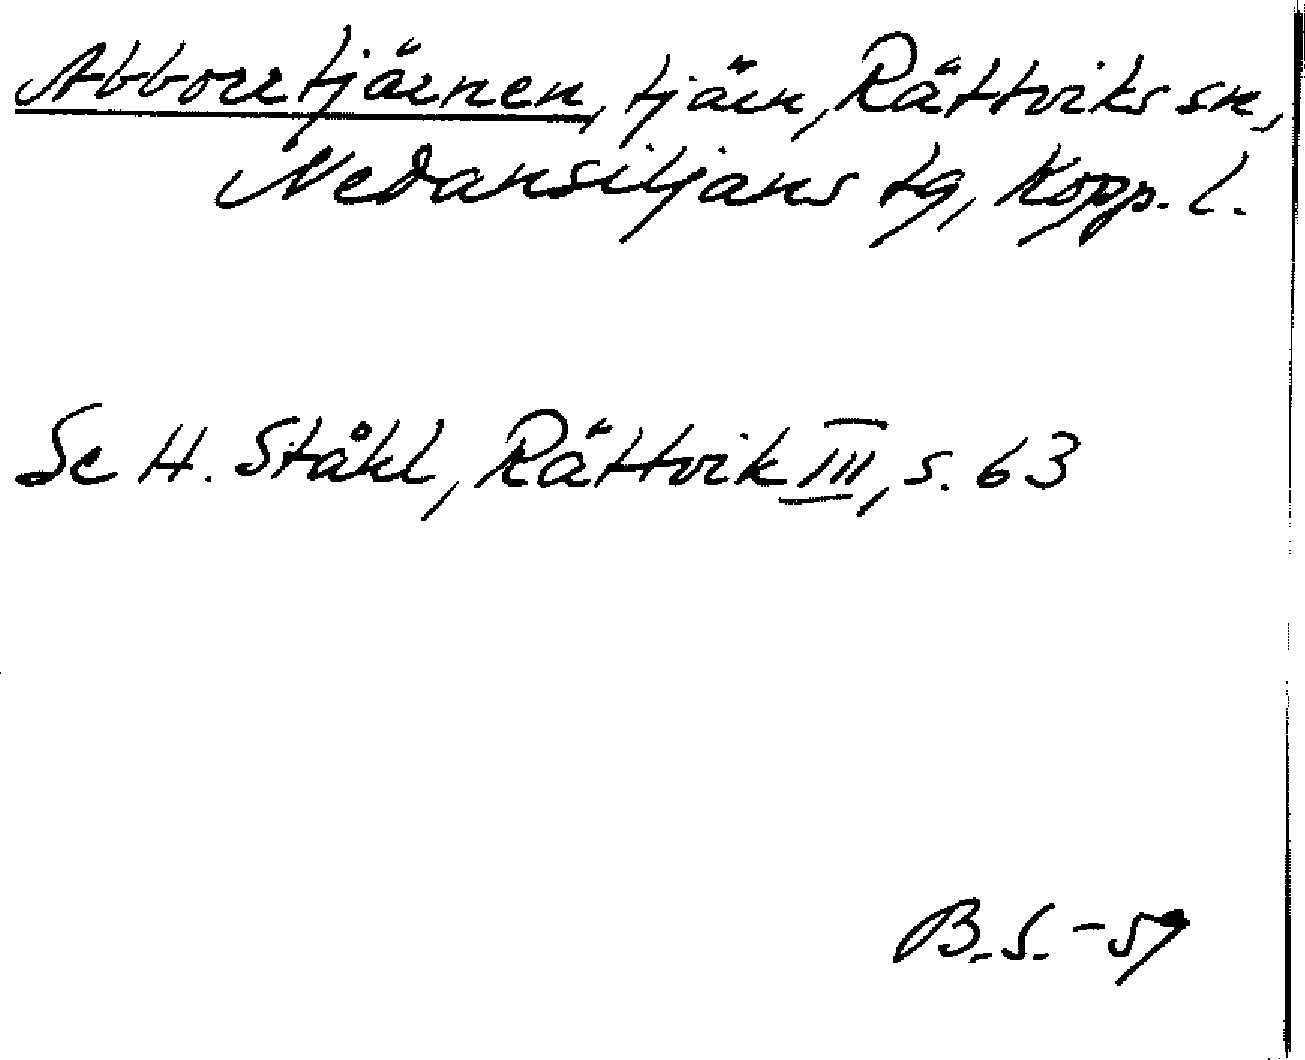 Abborrtjärnen, tjärn, Rättviks sn,
Nedansiljans tg, Kopp. l.
Se H. Ståhl, Rättvik III, s. 63
B.S. -59